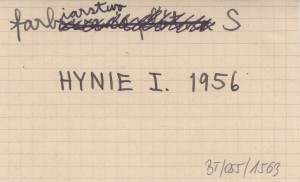 farbiarstwo S
HYNIE I. 1956
BT/405/1563